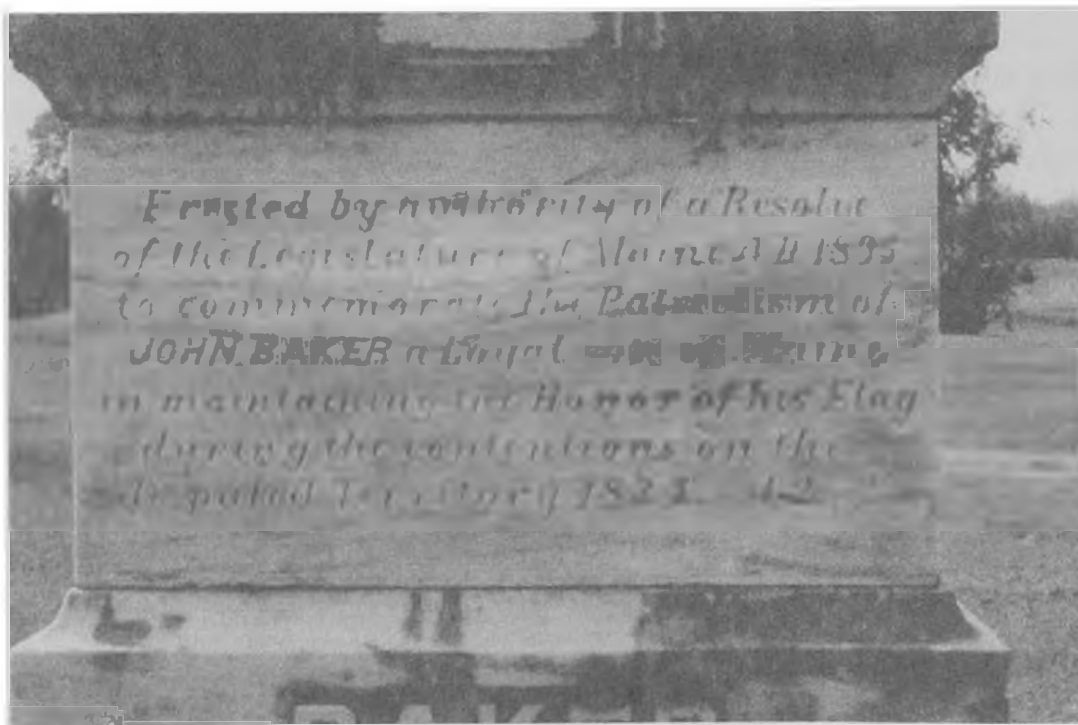 Erected by authority of a Resolve
of the Legislature of Maine A D 1895
to commemorate the Patriotism of
JOHN BAKER a Loyal son of Maine
in maintaining the Honor of his Flag
during the contentions on the
disputed Territory 42
BAKER